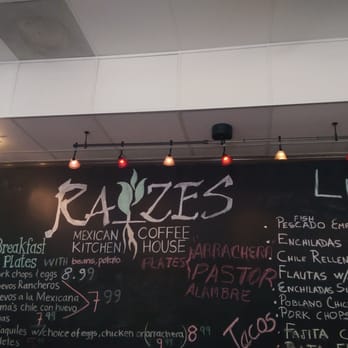 RAIZES
MEXICAN KITCHEN
COFFEE HOUSE
Breakfast
Plates WITH beans, potato
chops / eggs 8.99
Rancheros
a la Mexicana
chile con huevo
7.99
w/ choice of eggs, chicken or (arrachera) 8.99
PLATES
ARRACHERA
PASTOR
ALAMBRE
Tacos
FISH
• PESCADO
• ENCHILADAS
• CHILE RELLE
• FLAUTAS W/
• ENCHILADAS
• POBLANO CHIC
• PORK CHOPS
• FAJITA